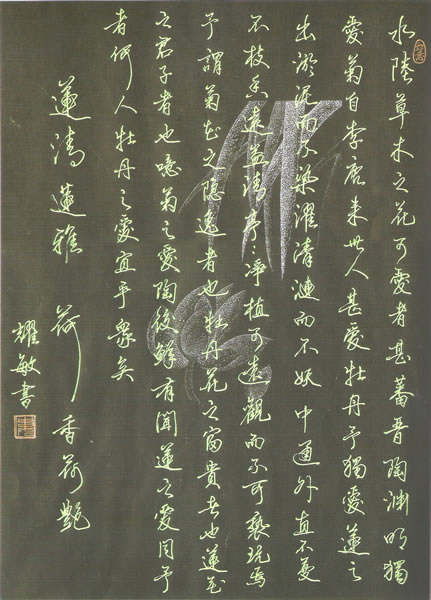 水陸草木之花可愛者甚蕃晋陶渊明獨
愛菊自李唐来世人甚愛牡丹予獨愛蓮之
出淤泥而不染濯清漣而不妖中通外直不蔓
不枝香遠益清亭〻净植可遠觀而不可褻玩焉
予謂菊花之隱逸者也牡丹花之富貴者也蓮花
之君子者也噫菊之愛陶後鮮有聞蓮之愛同予
者何人牡丹之愛宜乎眾矣
蓮清蓮雅 荷香荷艷
耀敏書